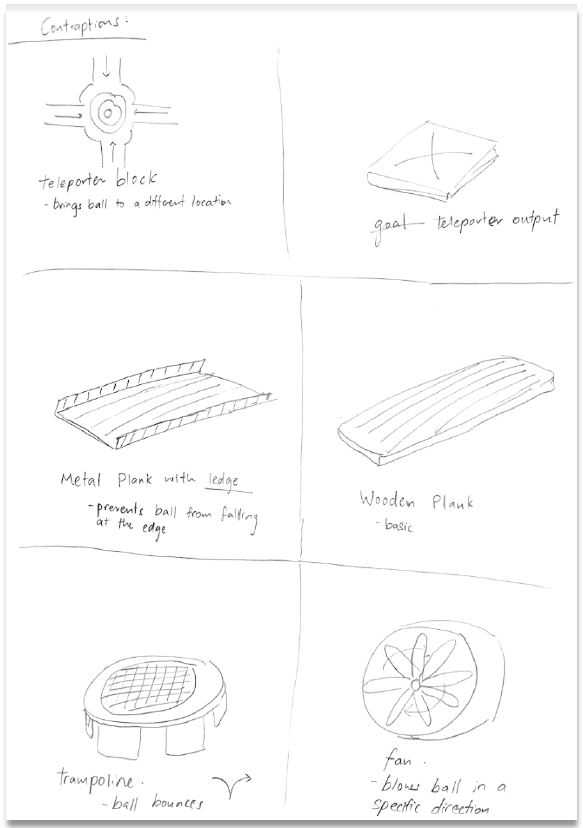 Contraptions.
teleporter block
- brings ball to a different location
goal teleporter output
Metal Plank with ledge
- prevents ball from falling
at the edge
Wooden Plank
- basic
trampoline.
- ball bounces
fan.
- blows ball in a
specific direction